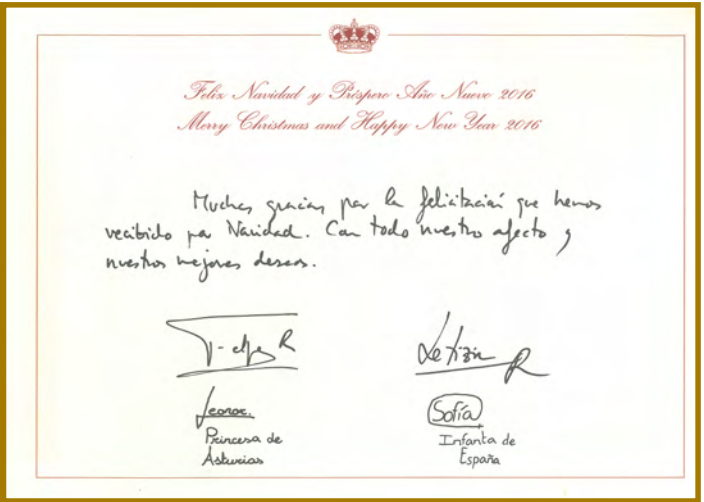 Feliz Navidad y Próspero Año Nuevo 2016
Merry Christmas and Happy New Year 2016
Muchas gracias por la felicitación que hemos
recibido por Navidad. Con todo nuestro afecto y
nuestros mejores deseos.
Felipe R
Letizia R
Leonor.
Princesa de
Asturias
Sofía
Infanta de
España